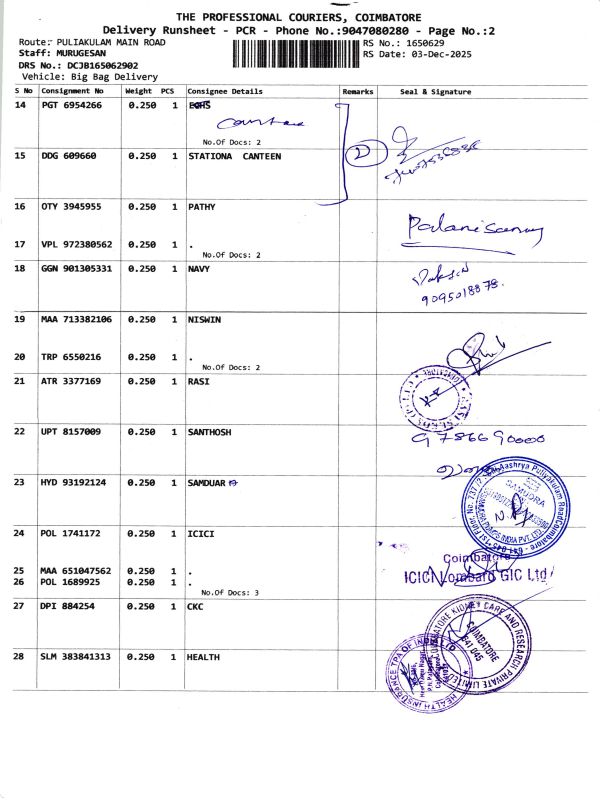 THE PROFESSIONAL COURIERS, COIMBATORE
Delivery Runsheet - PCR - Phone No.:9047080280 - Page No.:2
Route: PULIAKULAM MAIN ROAD
RS No.: 1650629
Staff: MURUGESAN
RS Date: 03-Dec-2025
DRS No.: DCJB165062902
Vehicle: Big Bag Delivery
S No Consignment No Weight PCS Consignee Details Remarks Seal & Signature
14 PGT 6954266 0.250 1 ECHS
No.Of Docs: 2
2
15 DDG 609660 0.250 1 STATIONA CANTEEN
16 OTY 3945955 0.250 1 PATHY
Palanisamy
17 VPL 972380562 0.250 1 .
No.Of Docs: 2
18 GGN 901305331 0.250 1 NAVY
9095018878.
19 MAA 713382106 0.250 1 NISWIN
20 TRP 6550216 0.250 1 .
No.Of Docs: 2
21 ATR 3377169 0.250 1 RASI
22 UPT 8157009 0.250 1 SANTHOSH
9786690000
23 HYD 93192124 0.250 1 SAMDUAR
SAMUDRA
24 POL 1741172 0.250 1 ICICI
Coimbatore
25 MAA 651047562 0.250 1 .
ICICI Lombard GIC Ltd
26 POL 1689925 0.250 1 .
No.Of Docs: 3
27 DPI 884254 0.250 1 CKC
COIMBATORE KIDNEY CARE AND RESEARCH PRIVATE LIMITED
COIMBATORE
641 045
28 SLM 383841313 0.250 1 HEALTH
HEALTH INSURANCE TPA OF INDIA LTD